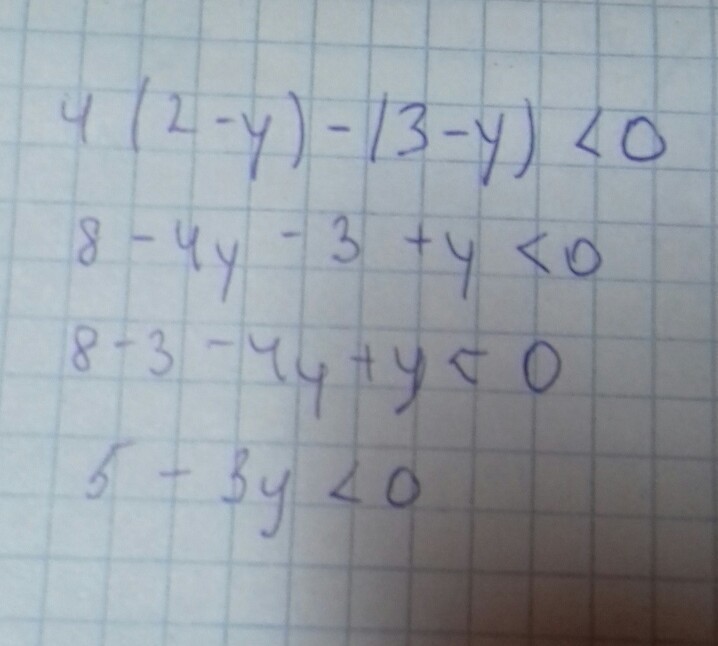 4(2-y)-(3-y)<0
8-4y-3+y<0
8-3-4y+y<0
5-3y<0